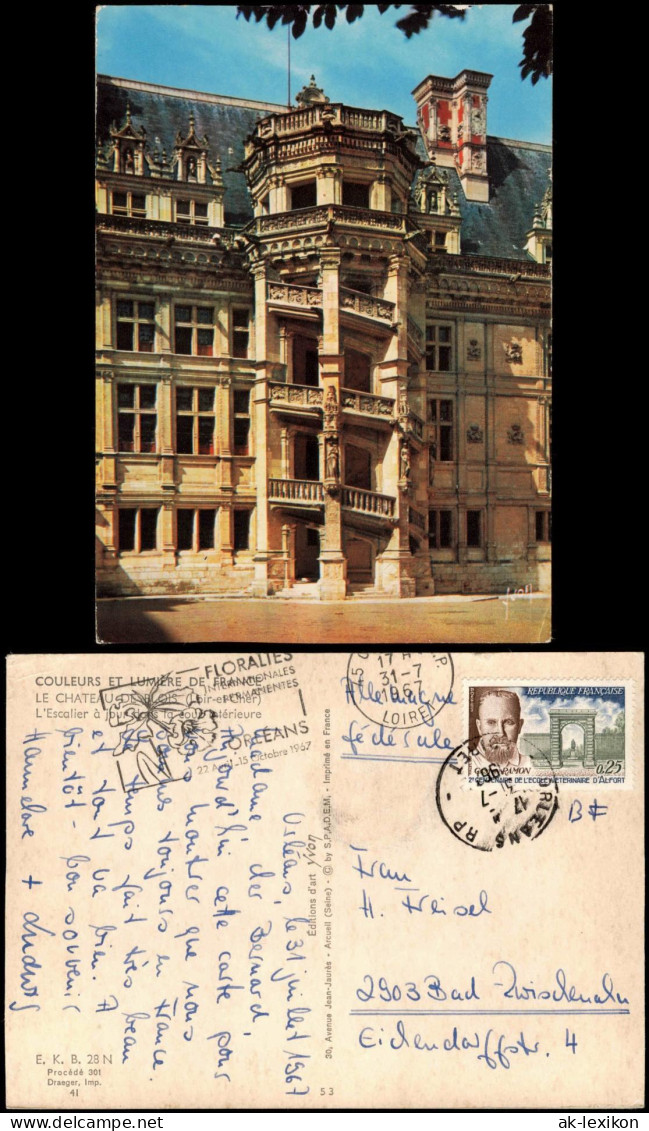 yvon
COULEURS ET LUMIÈRE DE FRANCE
LE CHATEAU DE BLOIS (Loir-et-Cher)
L'Escalier à jours de la cour intérieure
FLORALIES
INTERNATIONALES
PERMANENTES
ORLÉANS
22 Avril-15 Octobre 1967
45
R.P
17 H
31-7
1967
LOIRET
RÉPUBLIQUE FRANÇAISE
G. RAMON
0,25
2e CENTENAIRE DE L'ECOLE VETERINAIRE D'ALFORT
ORLEANS RP
17
31-7
Allemagne
fédérale
Frau
H. Meisel
2903 Bad-Zwischenahn
Eichendorffstr. 4
Orléans, le 31 juillet 1967
Madame der Bernard,
Aujourd'hui cette carte pour
vous montrer que nous
sommes toujours en France
Le temps fait très beau
et tout va bien. A
bientôt - bon souvenir
Hannelore + Ludwig
Editions d'art yvon
30, Avenue Jean-Jaurès - Arcueil (Seine) - © by S.P.A.D.E.M. - Imprimé en France
E. K. B. 28 N
Procédé 301
Draeger, Imp.
41
53
www.delcampe.net
ak-lexikon